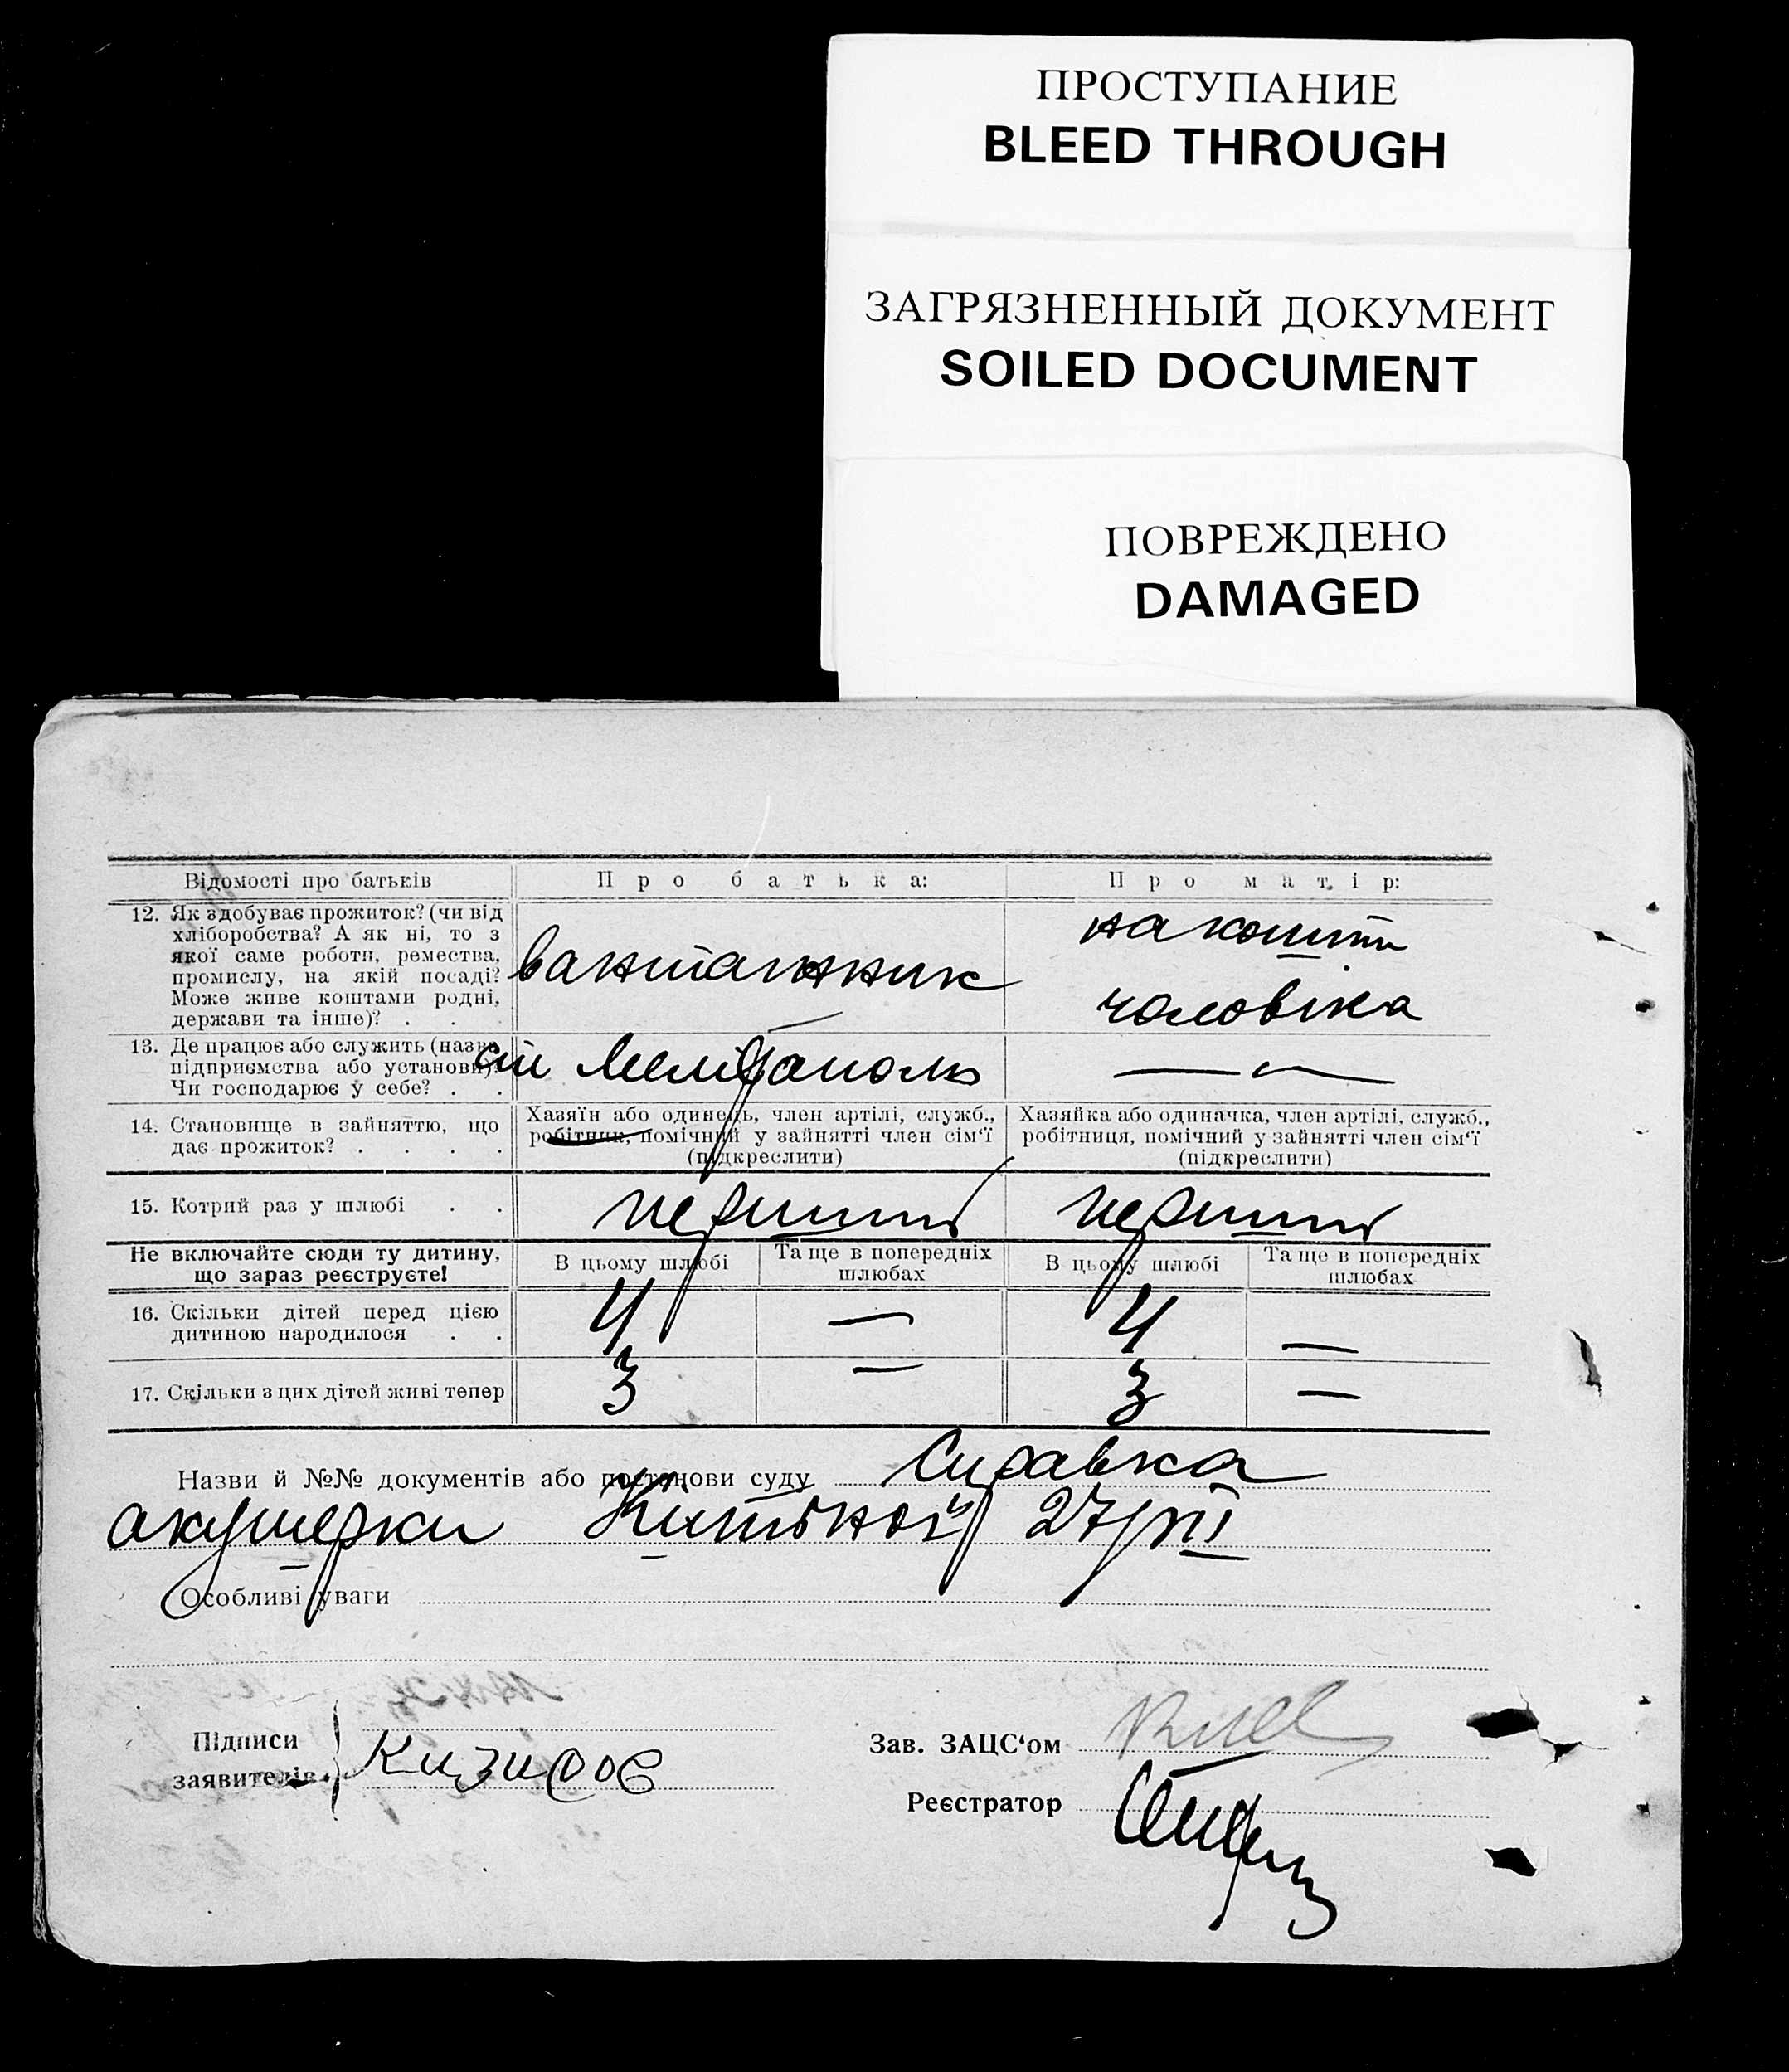 ПРОСТУПАНИЕ
BLEED THROUGH
ЗАГРЯЗНЕННЫЙ ДОКУМЕНТ
SOILED DOCUMENT
ПОВРЕЖДЕНО
DAMAGED
Відомості про батьків
Про батька:
Про матір:
12. Як здобуває прожиток? (чи від
хліборобства? А як ні, то з
якої саме роботи, ремества,
промислу, на якій посаді?
Може живе коштами родні,
держави та інше)? . . .
вантажник
на кошти
чоловіка
13. Де працює або служить (назва
підприємства або установи)?
Чи господарює у себе? . .
ст Мелітополь
—
14. Становище в зайняттю, що
дає прожиток? . . . .
Хазяїн або одинець, член артілі, служб.,
робітник, помічний у зайнятті член сім‘ї
(підкреслити)
Хазяйка або одиначка, член артілі, служб.,
робітниця, помічний у зайнятті член сім‘ї
(підкреслити)
15. Котрий раз у шлюбі . .
перший
перший
Не включайте сюди ту дитину,
що зараз реєструєте!
В цьому шлюбі
Та ще в попередніх
шлюбах
В цьому шлюбі
Та ще в попередніх
шлюбах
16. Скільки дітей перед цією
дитиною народилося . .
4 — 4 —
17. Скільки з цих дітей живі тепер
3 — 3 —
Назви й №№ документів або постанови суду Справка
акушерки 27/VII
Особливі уваги
Підписи
заявителів.
Зав. ЗАЦС‘ом
Реєстратор